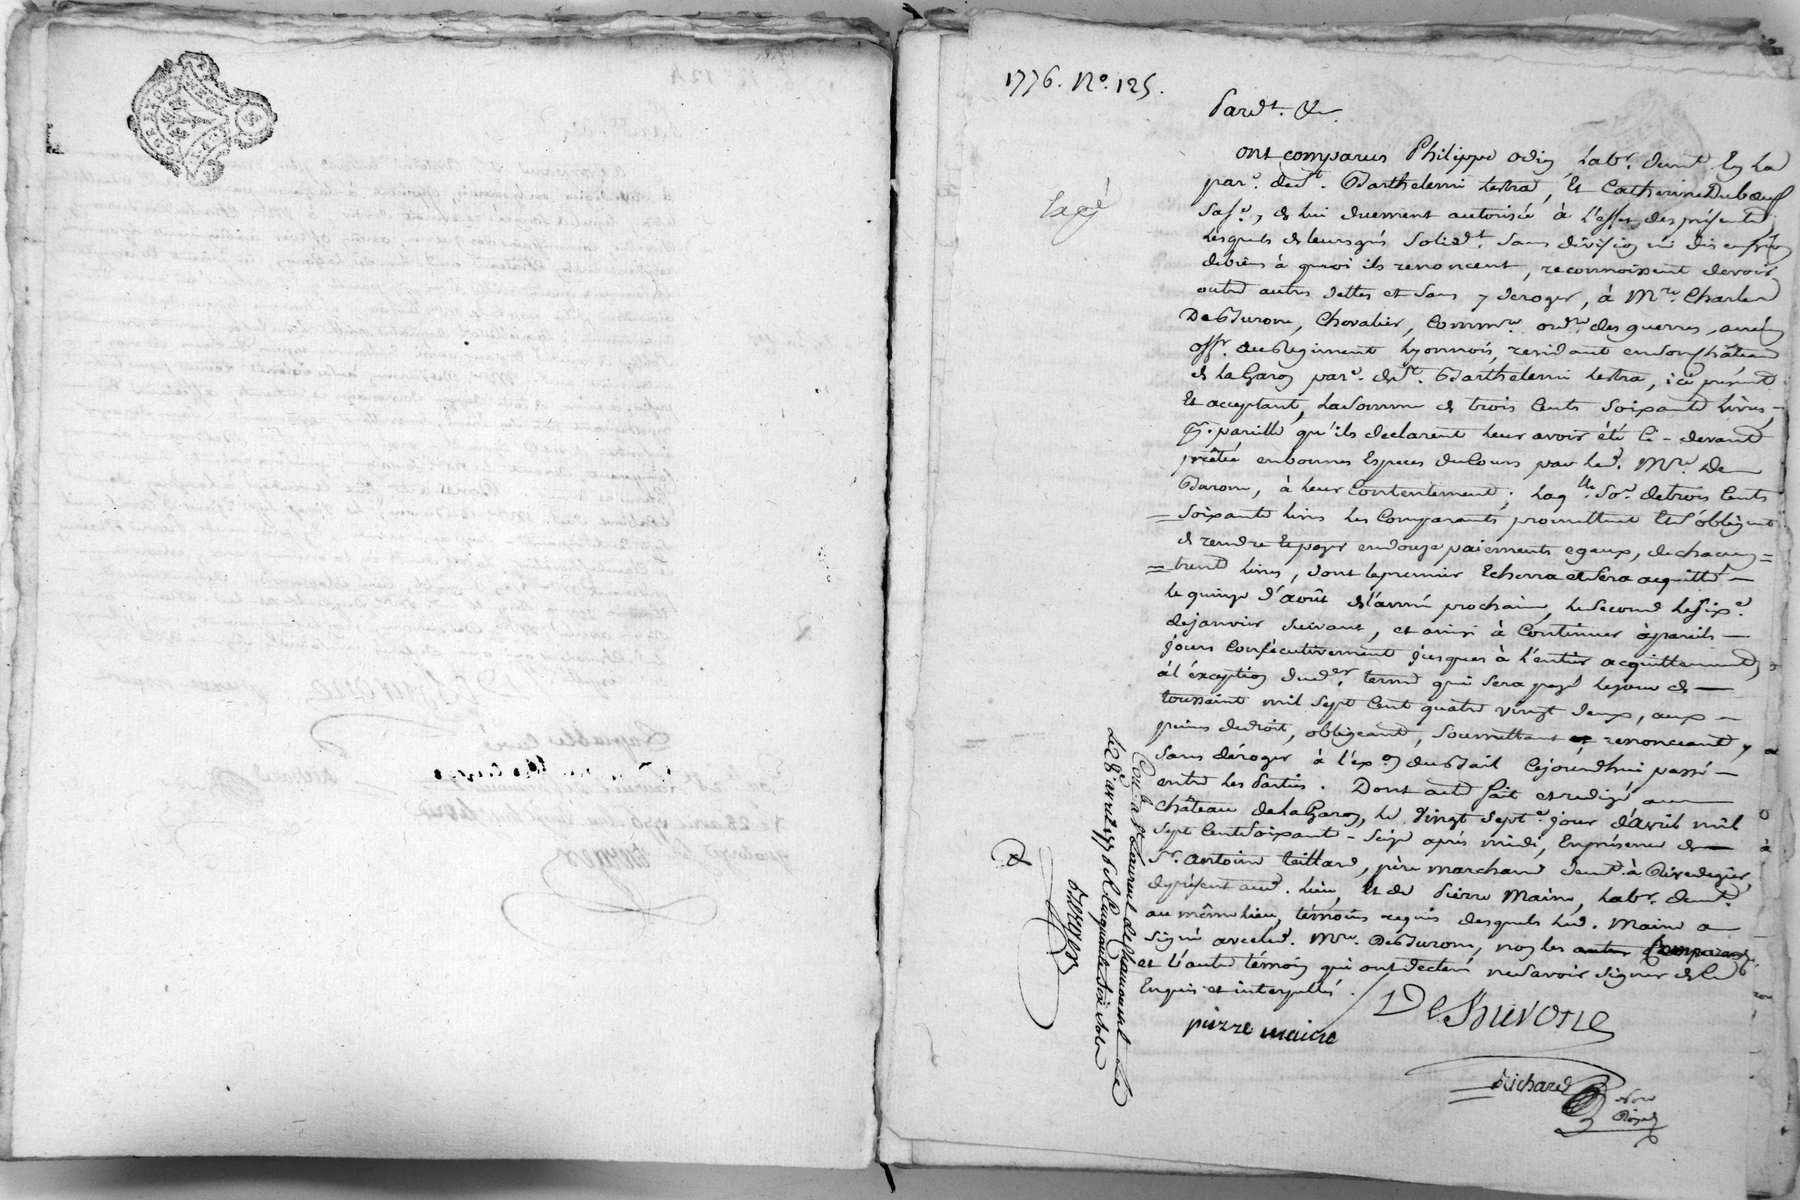 1776. N°. 125.
Pard.t &
ont comparus Philippe odin Lab.r demt. En La
par.e de St. Barthelemi Lestra, Et Catherine Duboeuf
Sa fe., de lui duement autorisée à l'effet des présentes,
Lesquels de leurs grés Solidt. Sans division ni discussion
de biens à quoi ils renoncent, reconnoissent devoir
outre autres dettes et Sans y deroger, à Mre. Charles
De Burone, Chevalier, Commre. ordre. des guerres, ancien
offr. au Regiment Lyonnois, residant en Son Château
de la Garon pare. de St. Barthelemi Lestra, ici présent
Et acceptant, La Somme de trois Cents Soixante Livres,
pareille qu'ils declarent leur avoir été Ci-devant
prêtée en bonnes Especes du Cours par led. Mre. De
Burone, à leur Contentement; Laqlle. Soe. de trois Cents
Soixante Livres Les Comparants promettent Et S'obligent
de rendre Et payer en douze paiements egaux, de chacun
trente Livres, dont le premier Echerra et Sera acquitté
le quinze d'août de l'année prochaine, Le Second le Six.
de janvier Suivant, et ainsi à Continuer à pareils
jours Consécutivement jusques à l'entier acquittement,
à l'exception du der. terme qui Sera payé le jour de
toussaint mil Sept Cent quatre vingt deux, aux
peines de droit, obligeant, Soumettant et renonceant,
Sans déroger à l'exon. du Bail Cejourd'hui passé
entre les Parties. Dont acte fait et redigé au
Château de la Garon, le Vingt Septe. jour d'avril mil
Sept Cent Soixante-Seize après midi, En présence de
Sr. Antoine taillard, père marchand demt. à Rivedegier,
de présent aud. Lieu, Et de Pierre Maire, Labr. demt.
au même lieu, témoins requis desquels Led. Maire a
Signé avec led. Mre. De Burone, non les autres Comparans
et l'autre témoin qui ont declaré ne Savoir Signer de Ce
Enquis et interpellés.
pierre maire
De Burone
Richard
Nore
Royal
Conlé. à St. Laurent de Chamousset
Le 28 avril 1776 R. Cinquante Six Sols